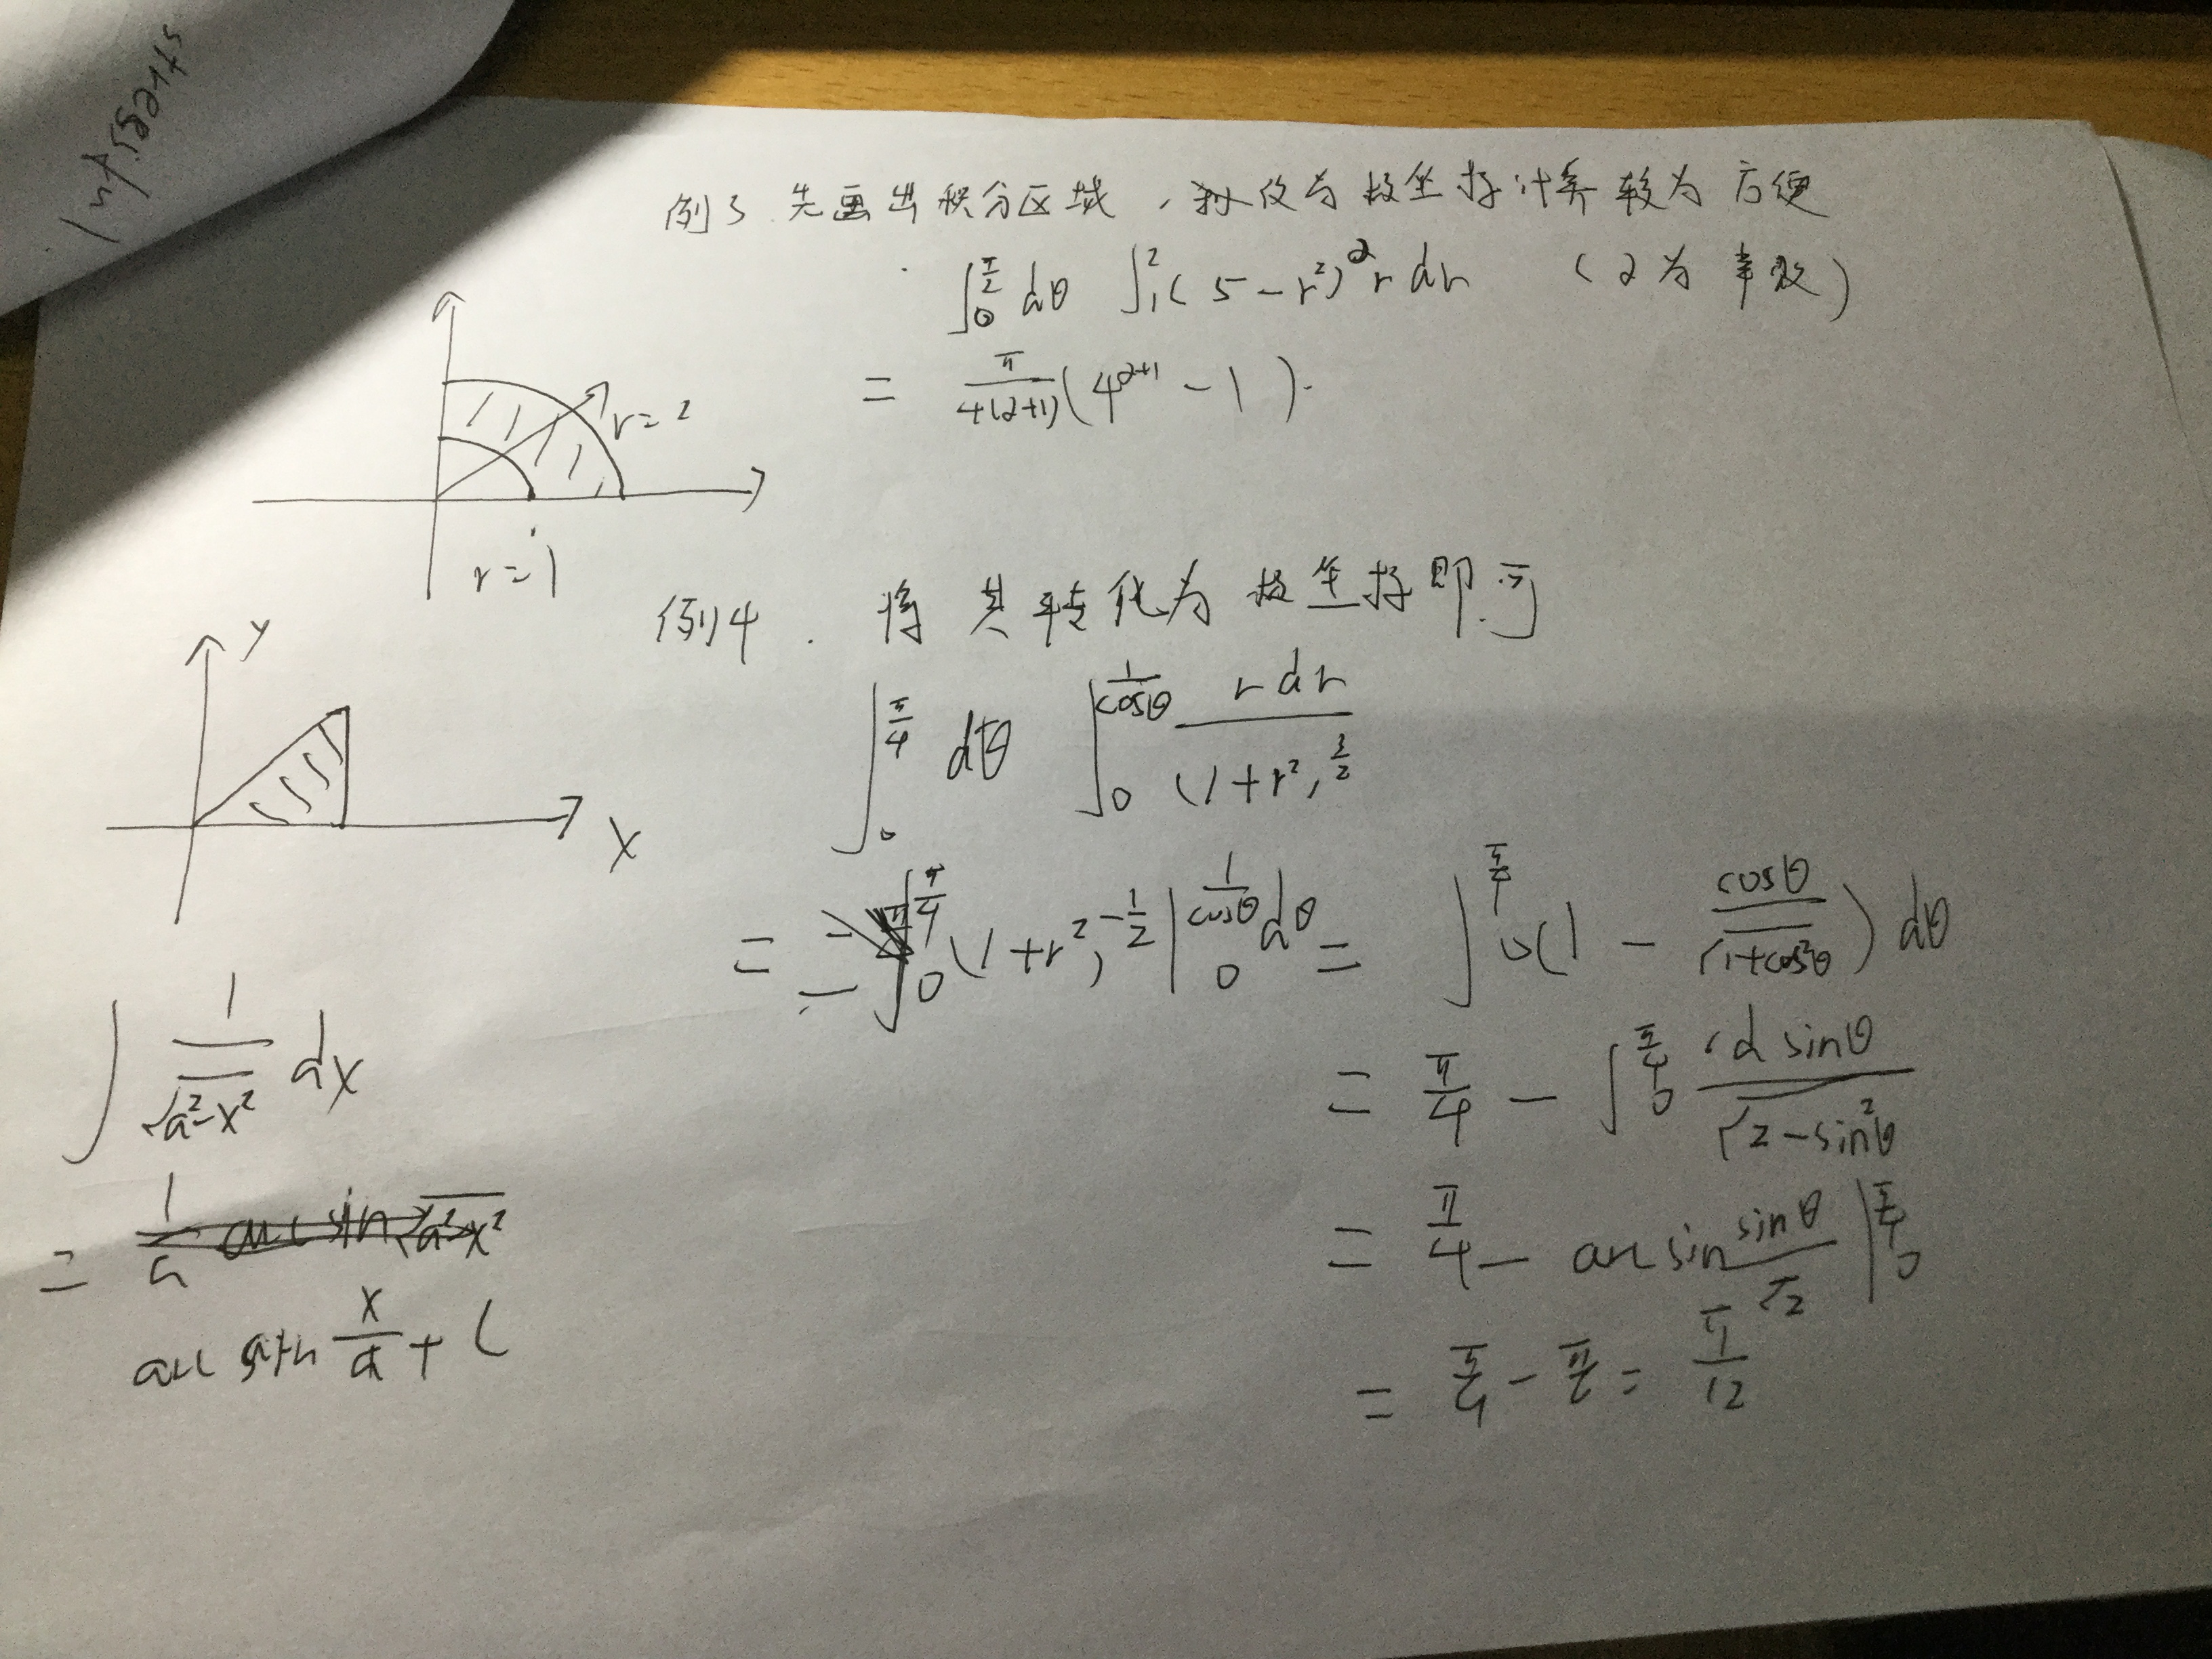 例3 先画出积分区域,拟使为极坐标计算较为方便
∫_0^{π/2} dθ ∫_1^2 (5-r²)^α r dr (α为常数)
= π/4(α+1) (4^{α+1} - 1).
r=2
r=1
例4. 将其转化为极坐标即可
y
x
∫_0^{π/4} dθ ∫_0^{1/cosθ} r dr/(1+r²)^{3/2}
= -∫_0^{π/4} (1+r²)^{-1/2} |_0^{1/cosθ} dθ = ∫_0^{π/4} (1 - cosθ/√(1+cos²θ)) dθ
= π/4 - ∫_0^{π/4} d sinθ/√(2-sin²θ)
= π/4 - arcsin sinθ/√2 |_0^{π/4}
= π/4 - π/6 = π/12
∫ 1/√(a²-x²) dx
=
arcsin x/a + C